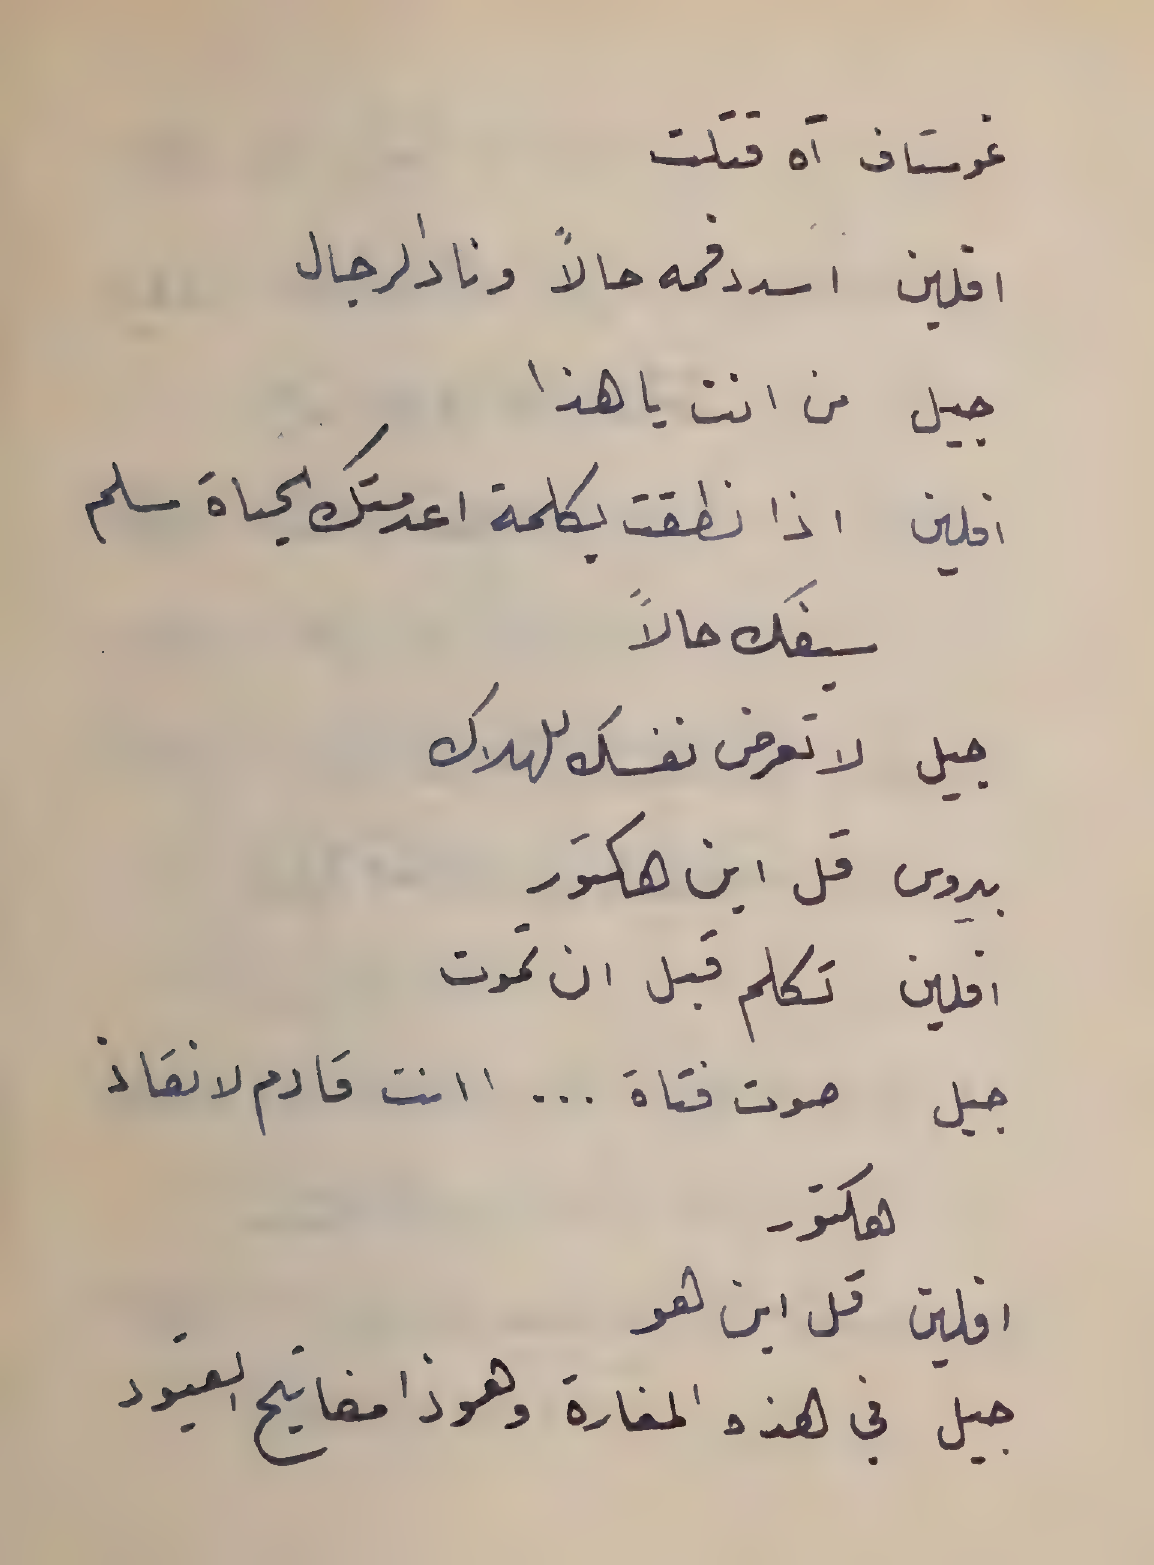 غوستاف آه قتلت
افلين اسدد فمه حالاً وناد الرجال
جيل من انت يا هذا
افلين اذا نطقت بكلمة اعدمتك الحياة سلم
سيفك حالاً
جيل لا تعرض نفسك للهلاك
بيدوس قل اين هكتور
افلين تكلم قبل ان تموت
جيل صوت فتاة ... اانت قادم لانقاذ
هكتور
افلين قل اين هو
جيل في هذه المغارة وهوذا مفاتيح القيود